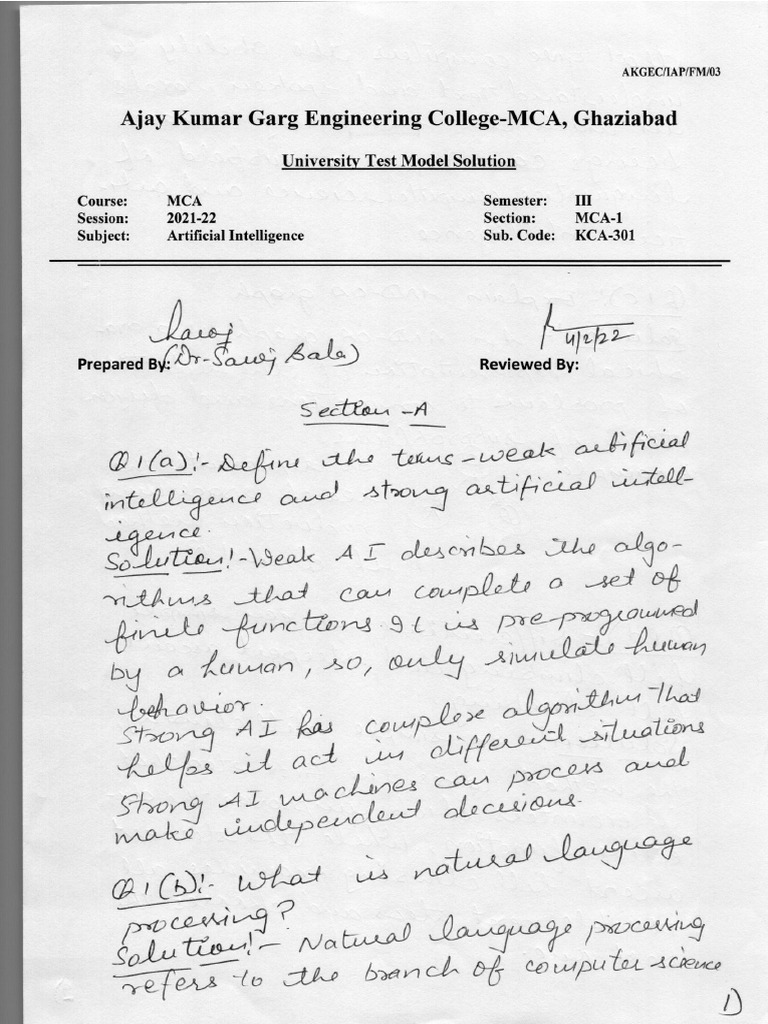 AKGEC/IAP/FM/03
Ajay Kumar Garg Engineering College-MCA, Ghaziabad
University Test Model Solution
Course: MCA Semester: III
Session: 2021-22 Section: MCA-1
Subject: Artificial Intelligence Sub. Code: KCA-301
Saroj
4/2/22
Prepared By: (Dr-Saroj Bala) Reviewed By:
Section - A
Q1(a):- Define the terms - weak artificial
intelligence and strong artificial intell-
igence.
Solution:- Weak AI describes the algo-
rithms that can complete a set of
finite functions. It is pre-programmed
by a human, so, only simulate human
behavior.
Strong AI has complex algorithm that
helps it act in different situations
Strong AI machines can process and
make independent decisions.
Q1(b):- What is natural language
processing?
Solution:- Natural language processing
refers to the branch of computer science
1)